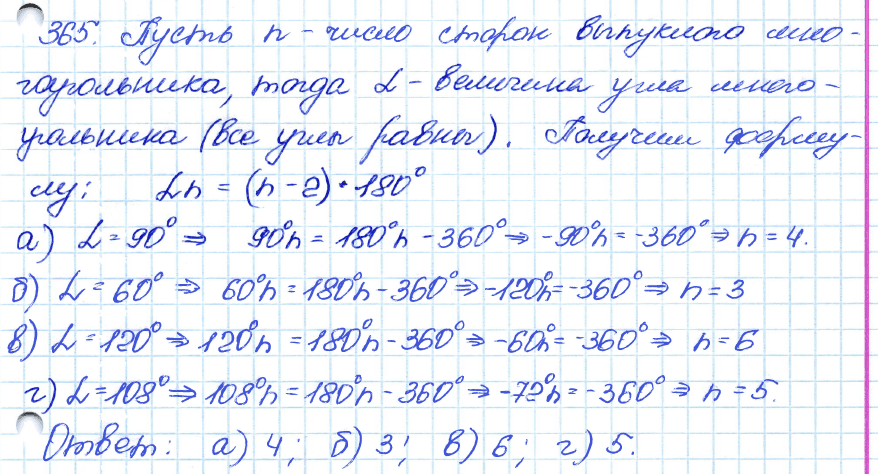 365. Пусть n - число сторон выпуклого мно-
гоугольника, тогда α - величина угла много-
угольника (все углы равны). Получим форму-
лу: αn = (n - 2) · 180°
а) α = 90° ⇒ 90°n = 180°n - 360° ⇒ -90°n = -360° ⇒ n = 4.
б) α = 60° ⇒ 60°n = 180°n - 360° ⇒ -120°n = -360° ⇒ n = 3
в) α = 120° ⇒ 120°n = 180°n - 360° ⇒ -60°n = -360° ⇒ n = 6
г) α = 108° ⇒ 108°n = 180°n - 360° ⇒ -72°n = -360° ⇒ n = 5.
Ответ: а) 4; б) 3; в) 6; г) 5.